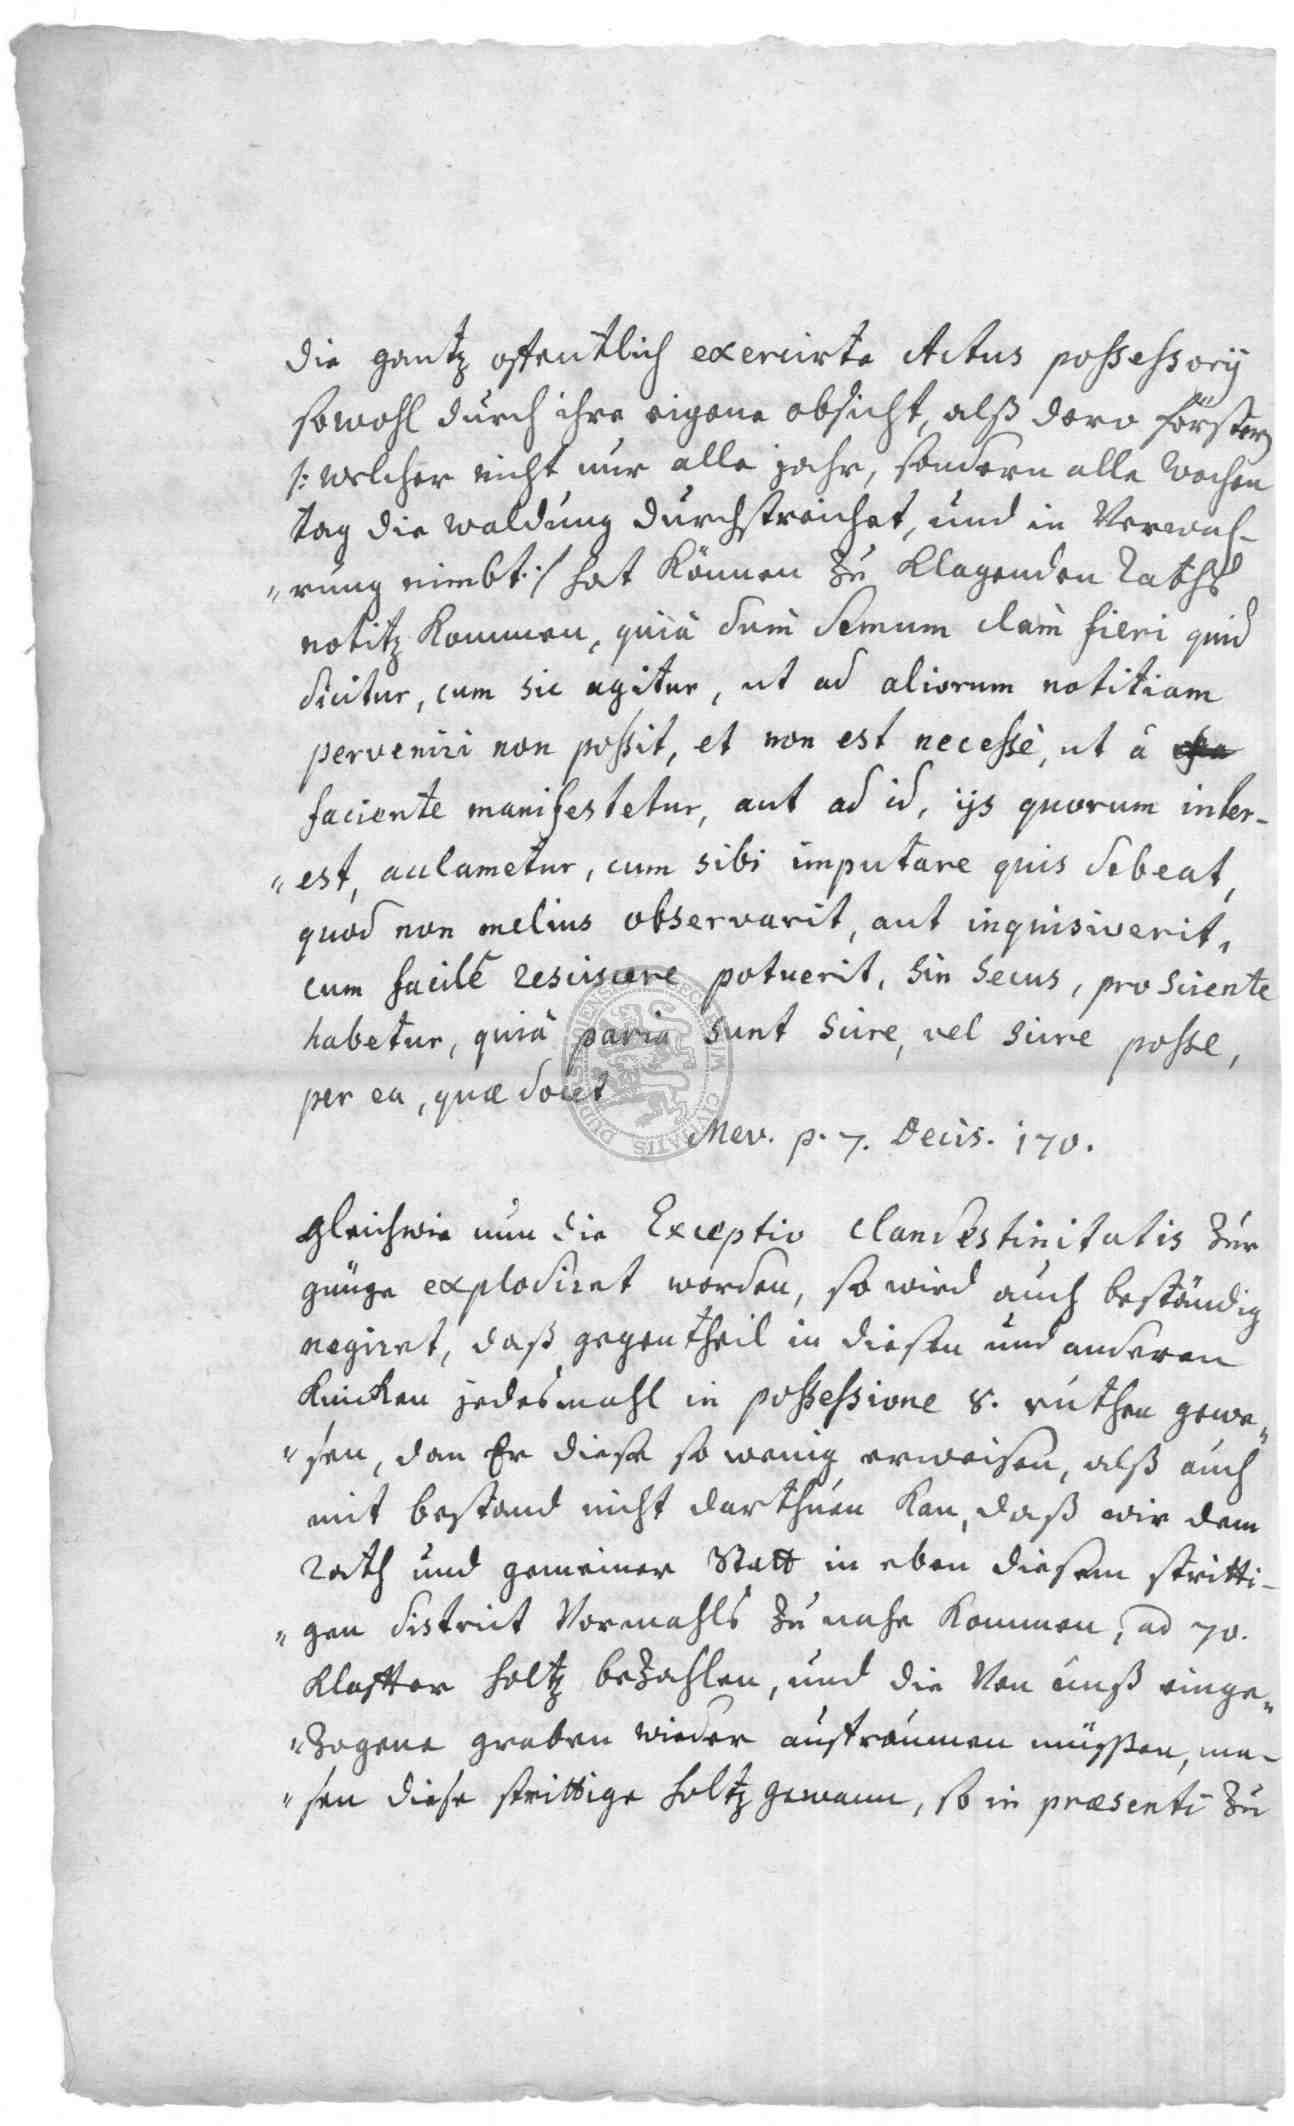 die gantz offentlich exercirte Actus possessorij
sowohl durch ihre eigene absicht, alß dero förstern
/: welcher nicht nur alle jahr, sondern alle wochen
tag die waldung durchstreichet, und in Verwah-
"rung nimbt :/ hat können zu klagenden Raths
notitz kommen, quià dum demum clàm fieri quid
dicitur, cum sic agitur, ut ad aliorum notitiam
perveniri non possit, et non est necessè, ut à
faciente manifestetur, aut ad id, ijs quorum inter-
"est, acclametur, cum sibi imputare quis debeat,
quod non melius observarit, aut inquisiverit,
cum facilè resciscere potuerit, sin secus, pro sciente
habetur, quià paria sunt scire, vel scire posse,
per ea, quæ docet
Mev. p. 7. Decis. 170.
gleichwie nun die Exceptio clandestinitatis zur
gnüge explodiret worden, so wird auch beständig
negiret, daß gegentheil in diesen und anderen
knicken jedesmahl in possessione 8. ruthen gewe"
"sen, dan Er diese so wenig erweisen, alß auch
mit bestand nicht darthuen kan, daß wir dem
rath und gemeiner Statt in eben diesem stritti-
"gen district Vormahls zu nahe kommen, ad 70.
klaffter holtz bezahlen, und die Von unß einge"
"zogene graben wieder außräumen müßen, ma-
"sen diese strittige holtz gewann, so in præsenti zu